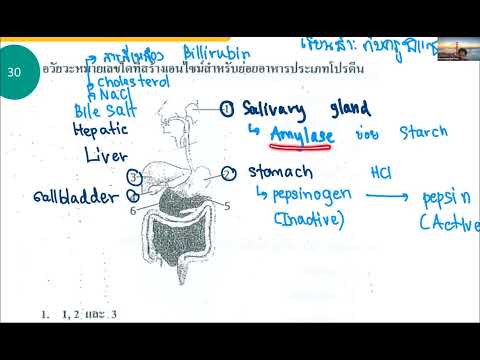 30
สารสีเหลือง Billirubin
เรียนสำ:
อวัยวะหมายเลขใดที่สร้างเอนไซม์สำหรับย่อยอาหารประเภทโปรตีน
Cholesterol
NaCl
Bile Salt
Hepatic
Liver
Gallbladder
1 Salivary gland
Amylase ย่อย Starch
3
2 Stomach HCl
pepsinogen → pepsin
(Inactive) (Active
6 5
1. 1, 2 และ 3